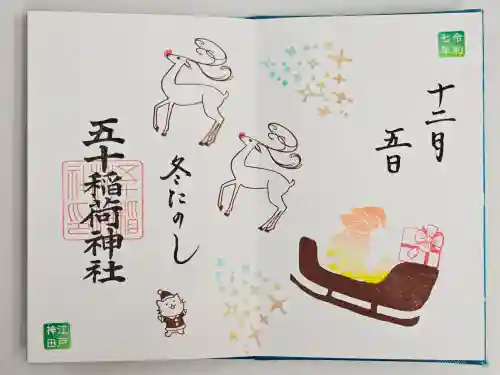 令和
七年
十二月
五日
冬にのし
五十稲荷神社
江戸
神田